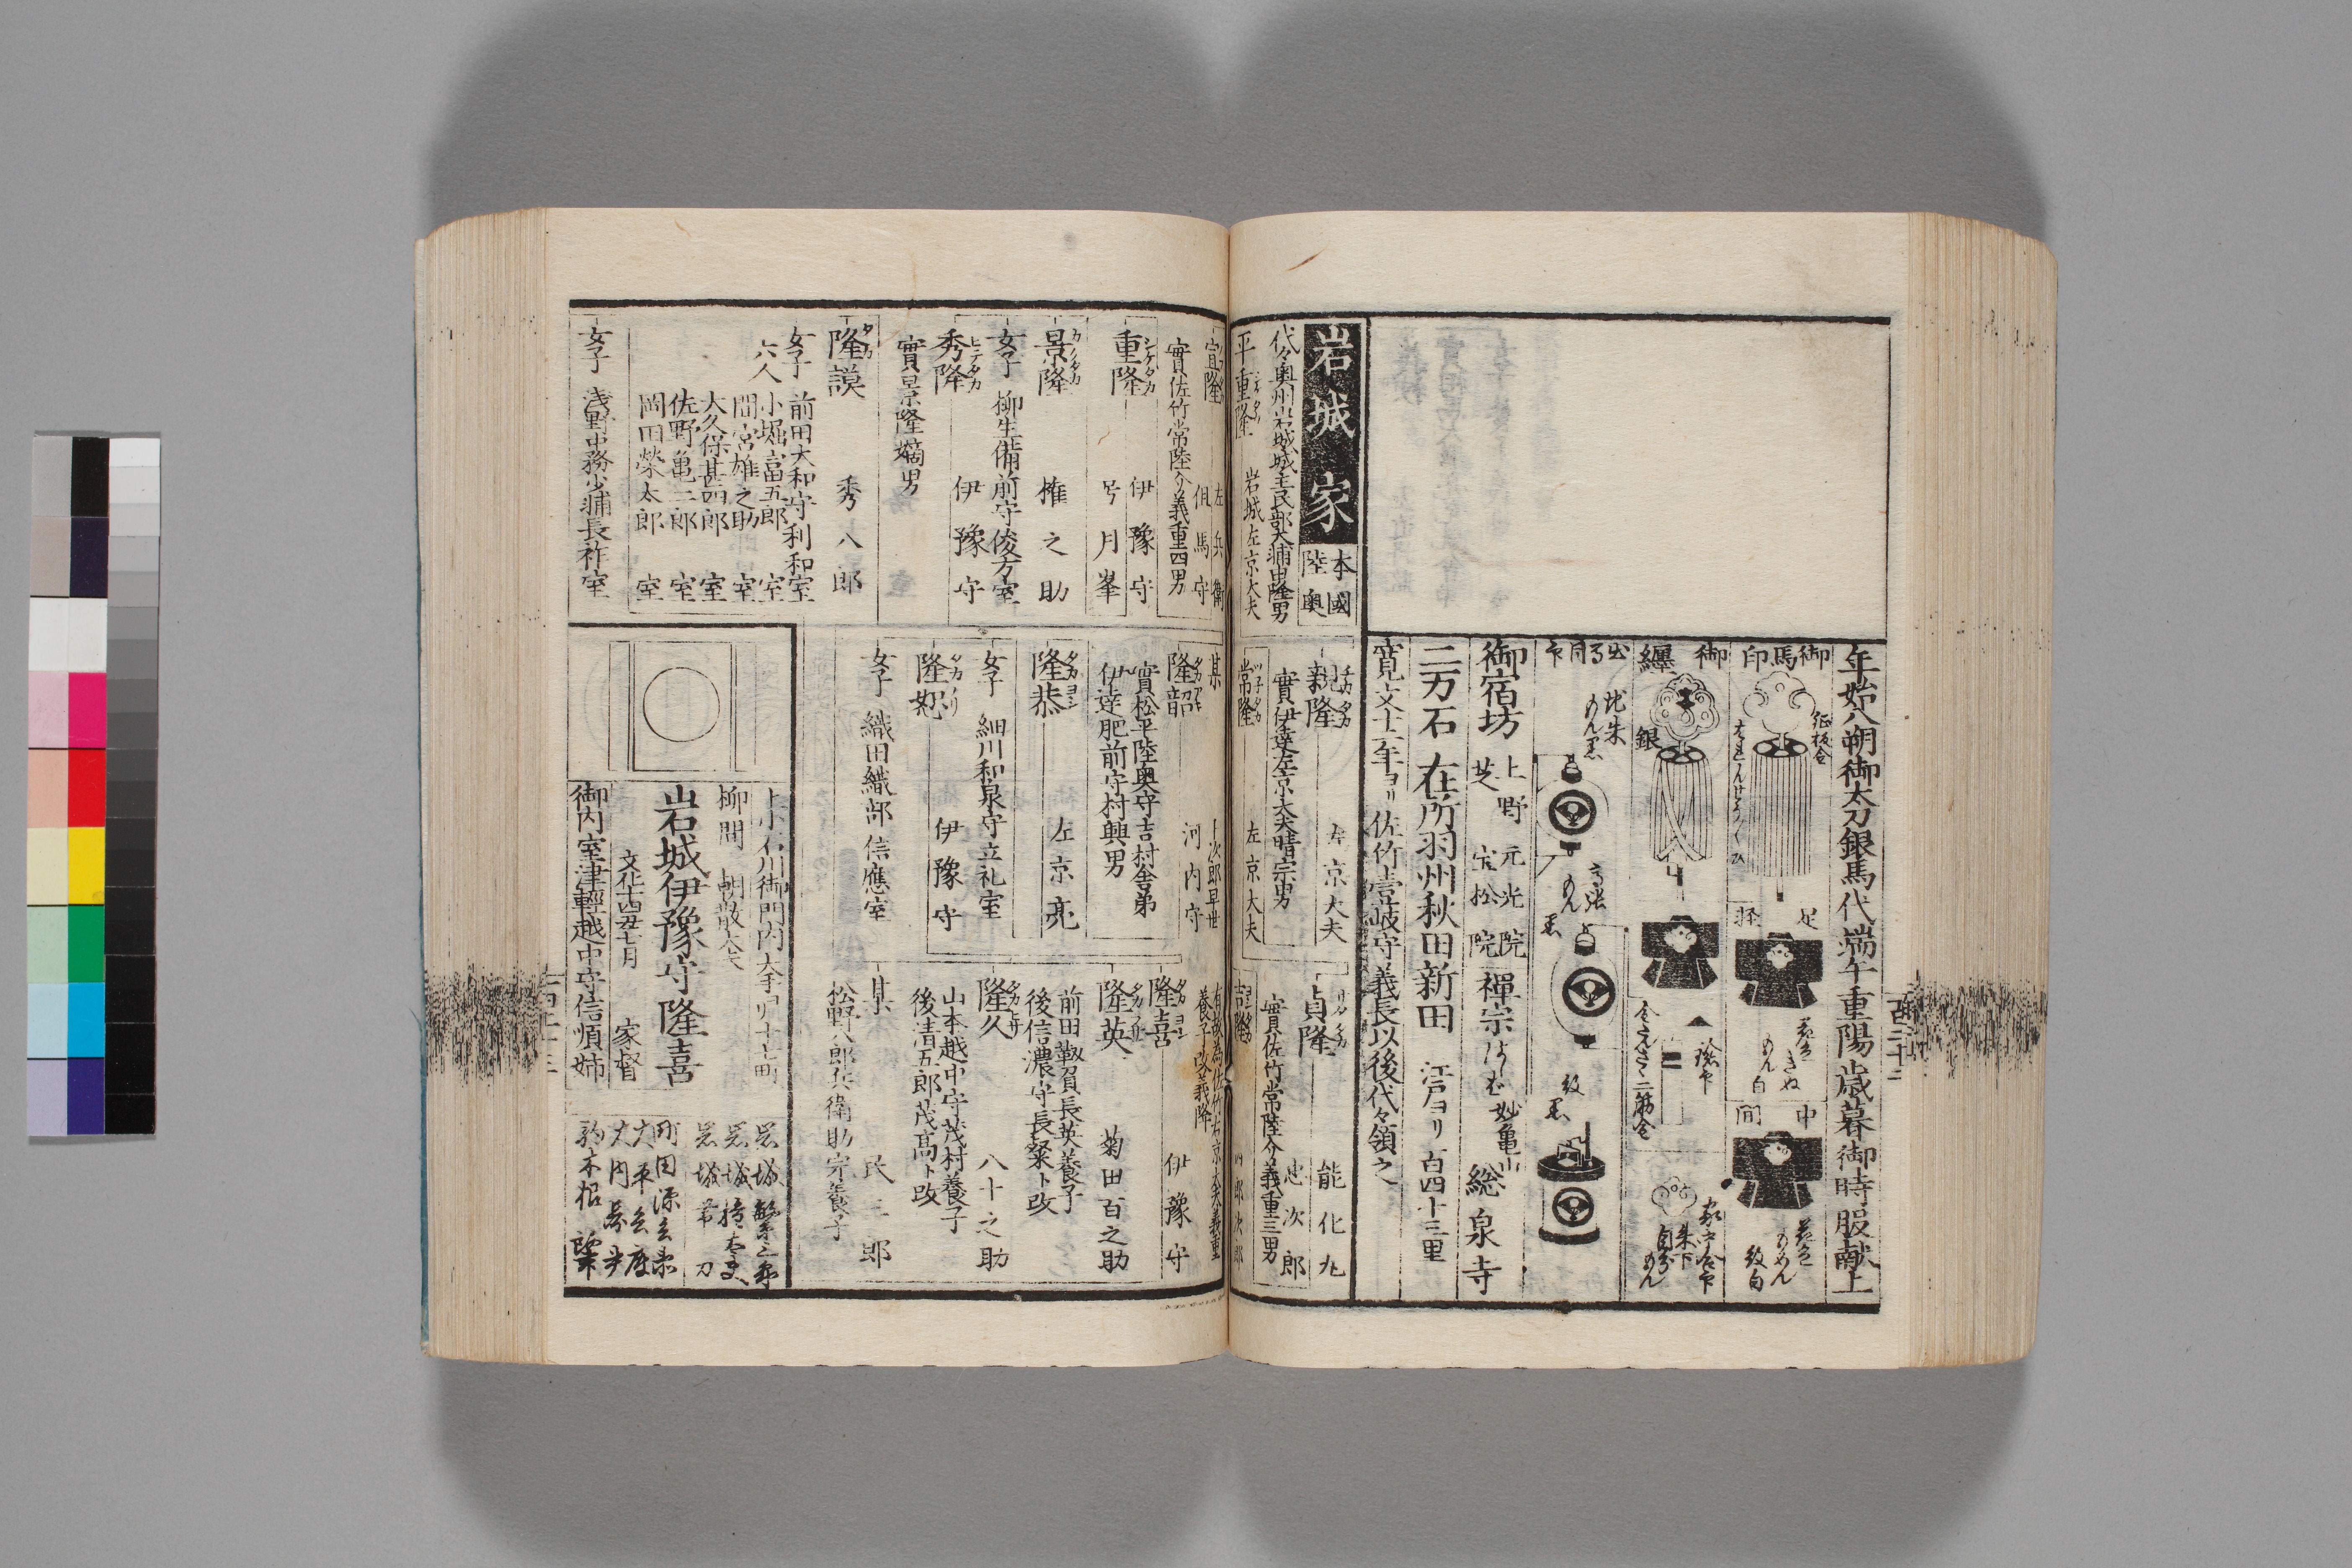 年始八朔御太刀銀馬代端午重陽歳暮御時服献上
御馬印
御纏
銀
御宿坊
上野元光院
芝
禅宗
総泉寺
二万石
在所羽州秋田新田
江戸ヨリ百四十三里
寛文十二年ヨリ
佐竹壱岐守義長以後代々領之
岩城家
本國
陸奥
代々奥州岩城城主民部大輔由隆男
平
重隆
岩城左京大夫
親隆
左京大夫
實伊達左京大夫晴宗男
常隆
左京大夫
貞隆
能化丸
忠次郎
實佐竹常陸介義重三男
吉隆
四郎次郎
有故為佐竹右京大夫義重
養子改義隆
宣隆
左兵衛
但馬守
實佐竹常陸介義重四男
重隆
シケタカ
伊豫守
号月峯
景隆
権之助
女子
柳生備前守俊方室
秀隆
ヒテタカ
伊豫守
實景隆嫡男
隆謨
秀八郎
女子
六人
前田大和守利和室
小堀富五郎室
間宮雄之助室
大久保甚四郎室
佐野亀三郎室
岡田榮太郎室
女子
浅野中務少輔長祚室
某
次郎早世
隆韶
河内守
實松平陸奥守吉村舎弟
伊達肥前守村興男
隆恭
左京亮
女子
細川和泉守立礼室
隆恕
伊豫守
女子
織田織部信應室
隆喜
伊豫守
隆英
菊田百之助
前田靱負長英養子
後信濃守長粲ト改
隆久
八十之助
山本越中守茂村養子
後清五郎茂高ト改
某
民三郎
松野八郎兵衛助宗養子
上小石川御門内大手ヨリ十七町
柳間
朝散大夫
岩城伊豫守隆喜
文化十四丑七月
家督
御内室津輕越中守信順姉